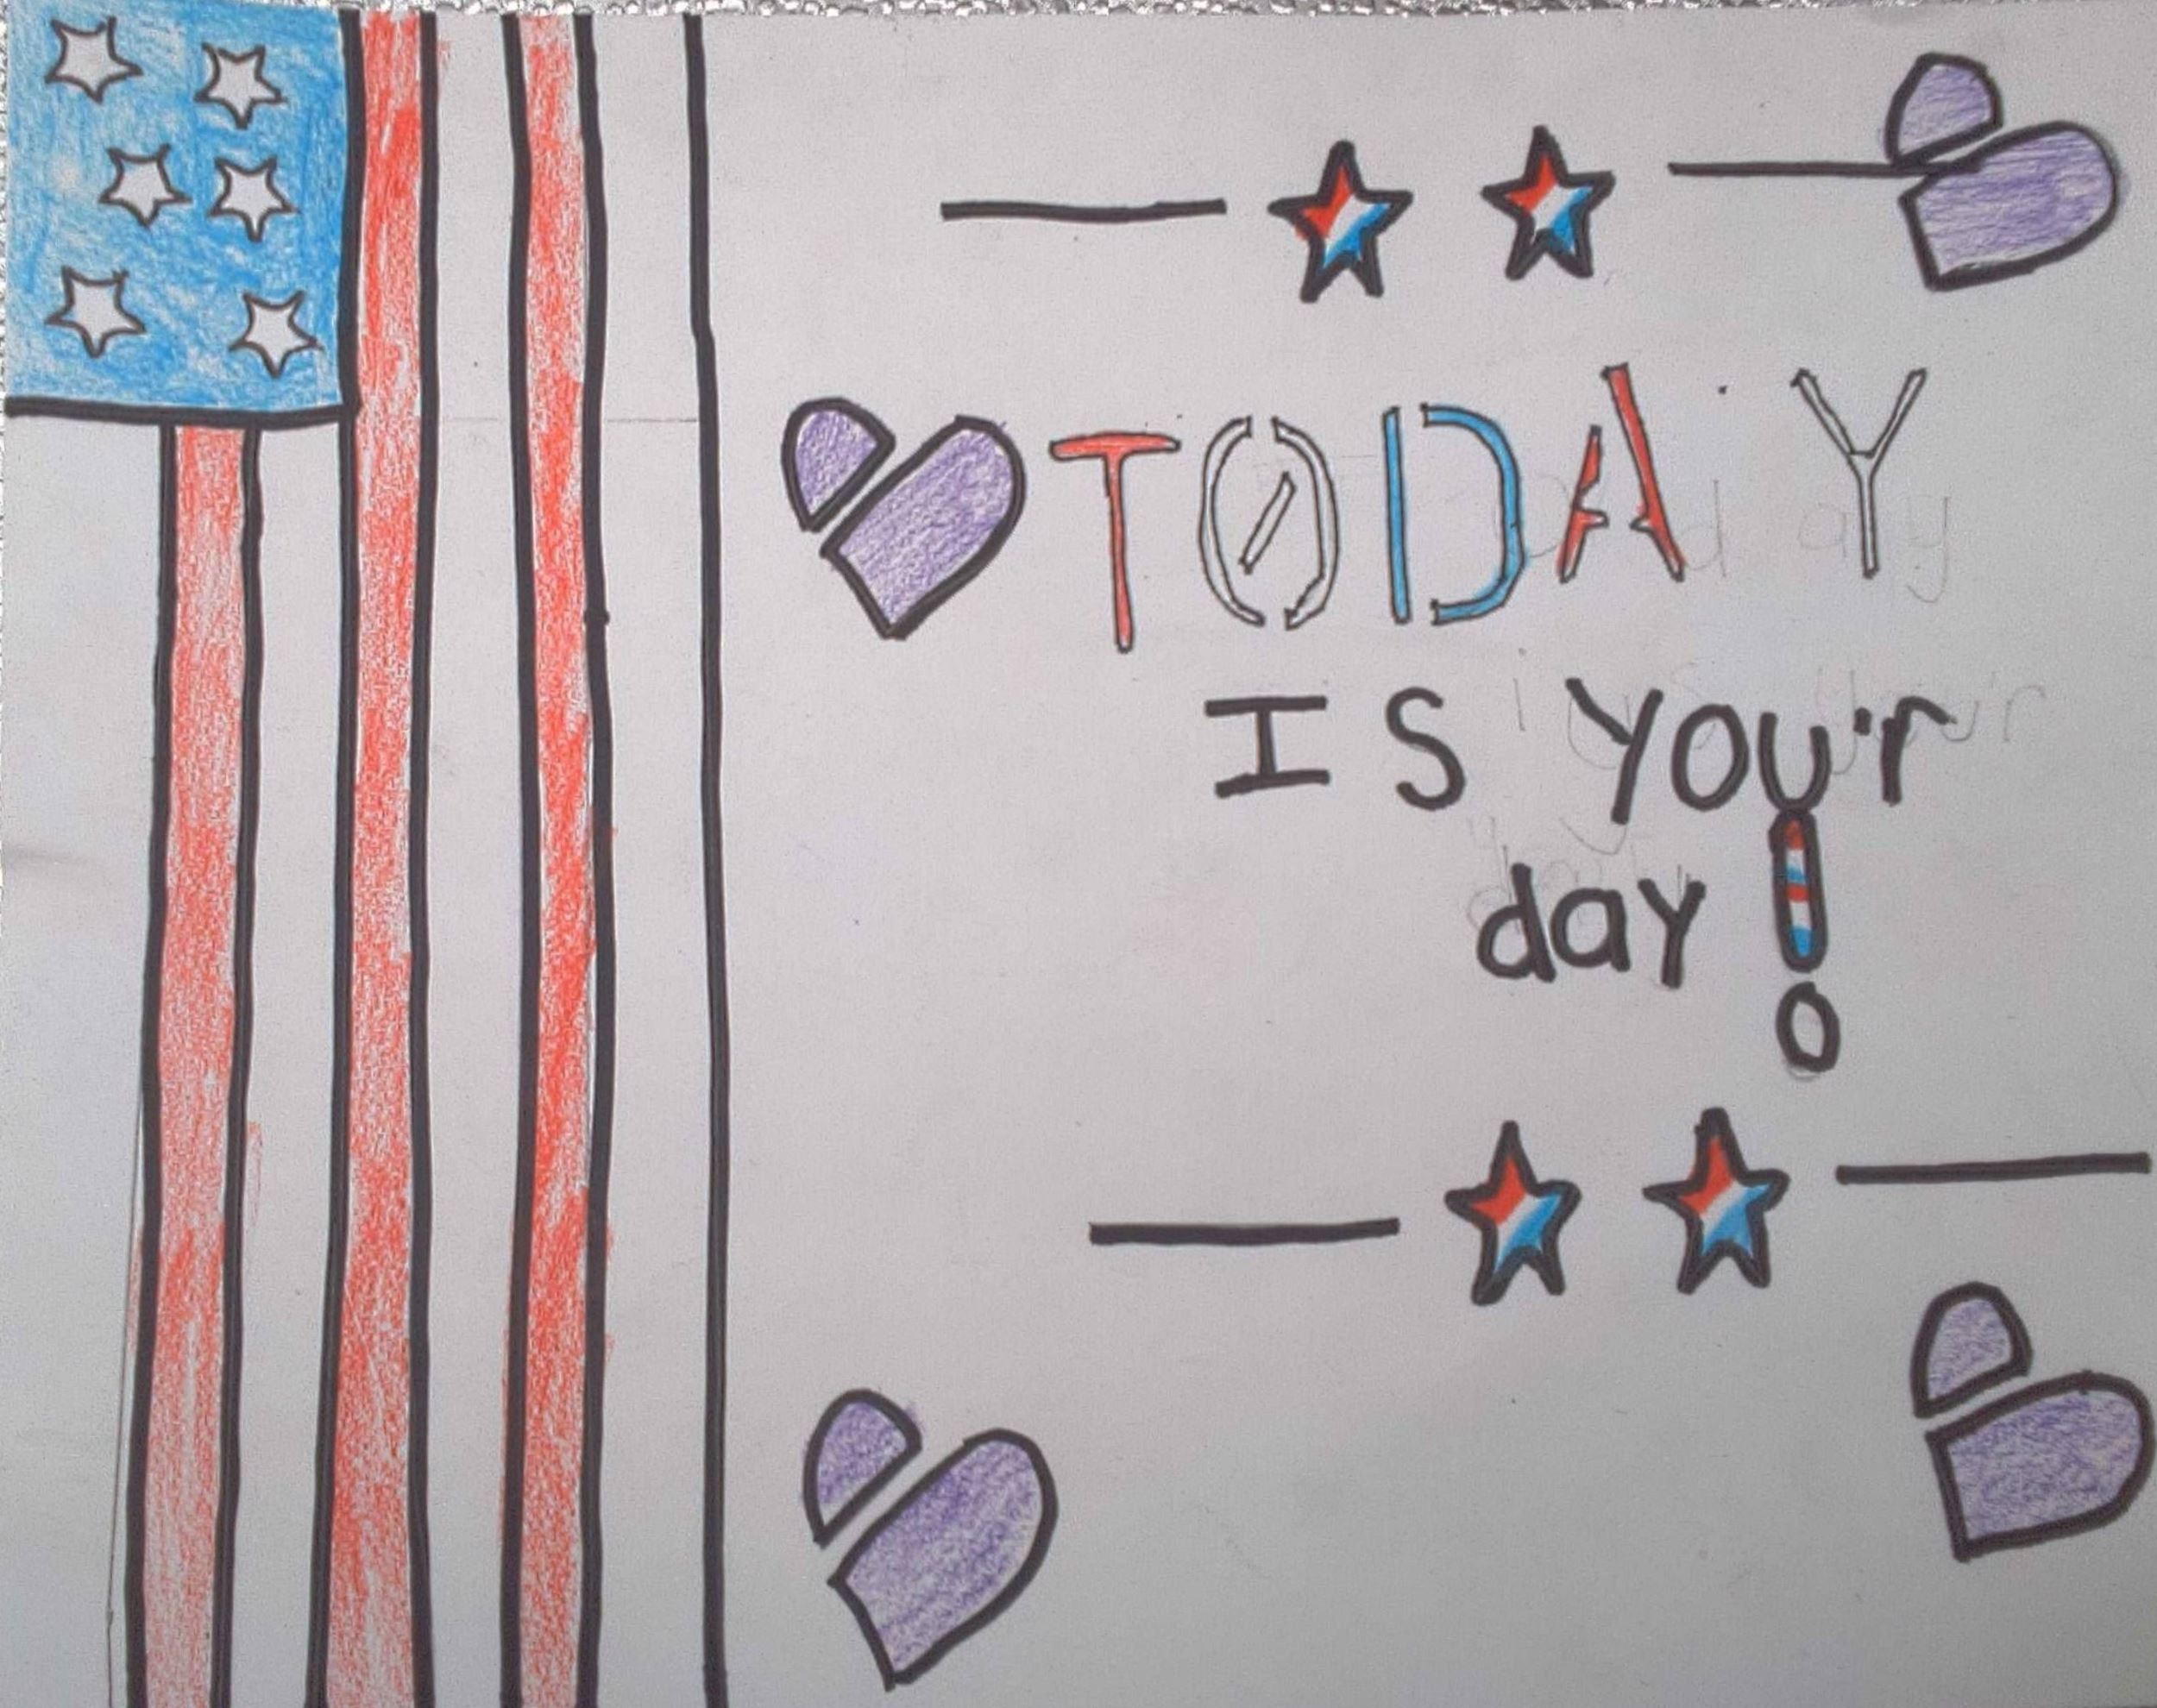 TODAY
IS you'r
day!